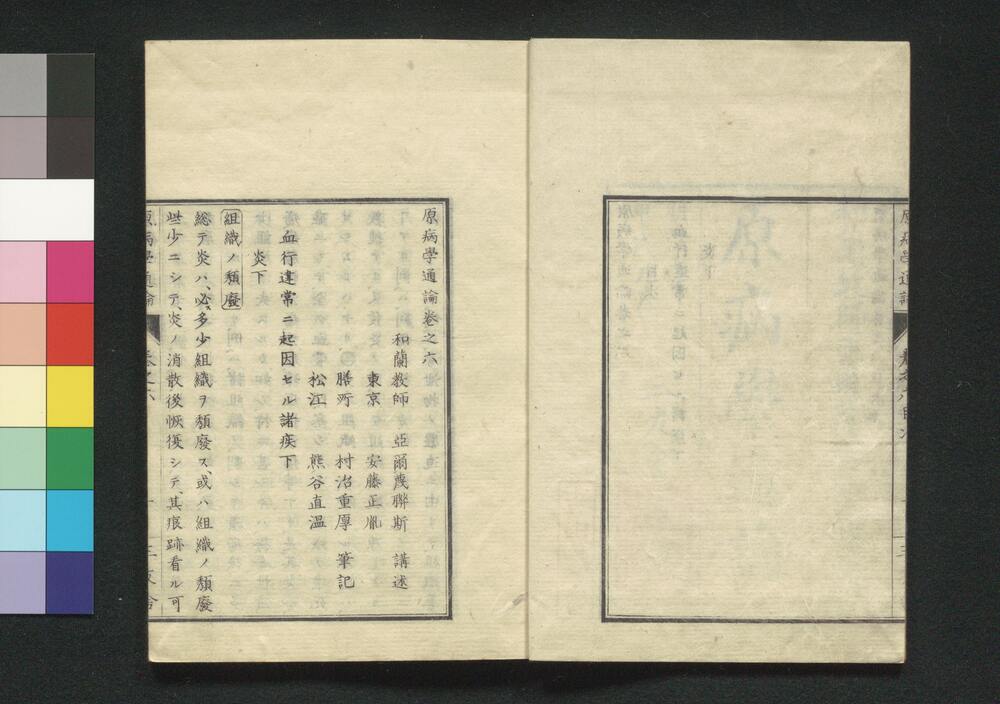 原病學通論卷之六
和蘭教師 亞爾蔑聯斯 講述
東京 安藤正胤
膳所 村治重厚 筆記
松江 熊谷直温
血行違常ニ起因セル諸疾下
炎下
組織ノ頽廢
総テ炎ハ、必、多少組織ヲ頽廢ス、或ハ組織ノ頽廢
些少ニシテ、炎ノ消散後恢復シテ、其痕跡看ル可
原病學通論 卷之六